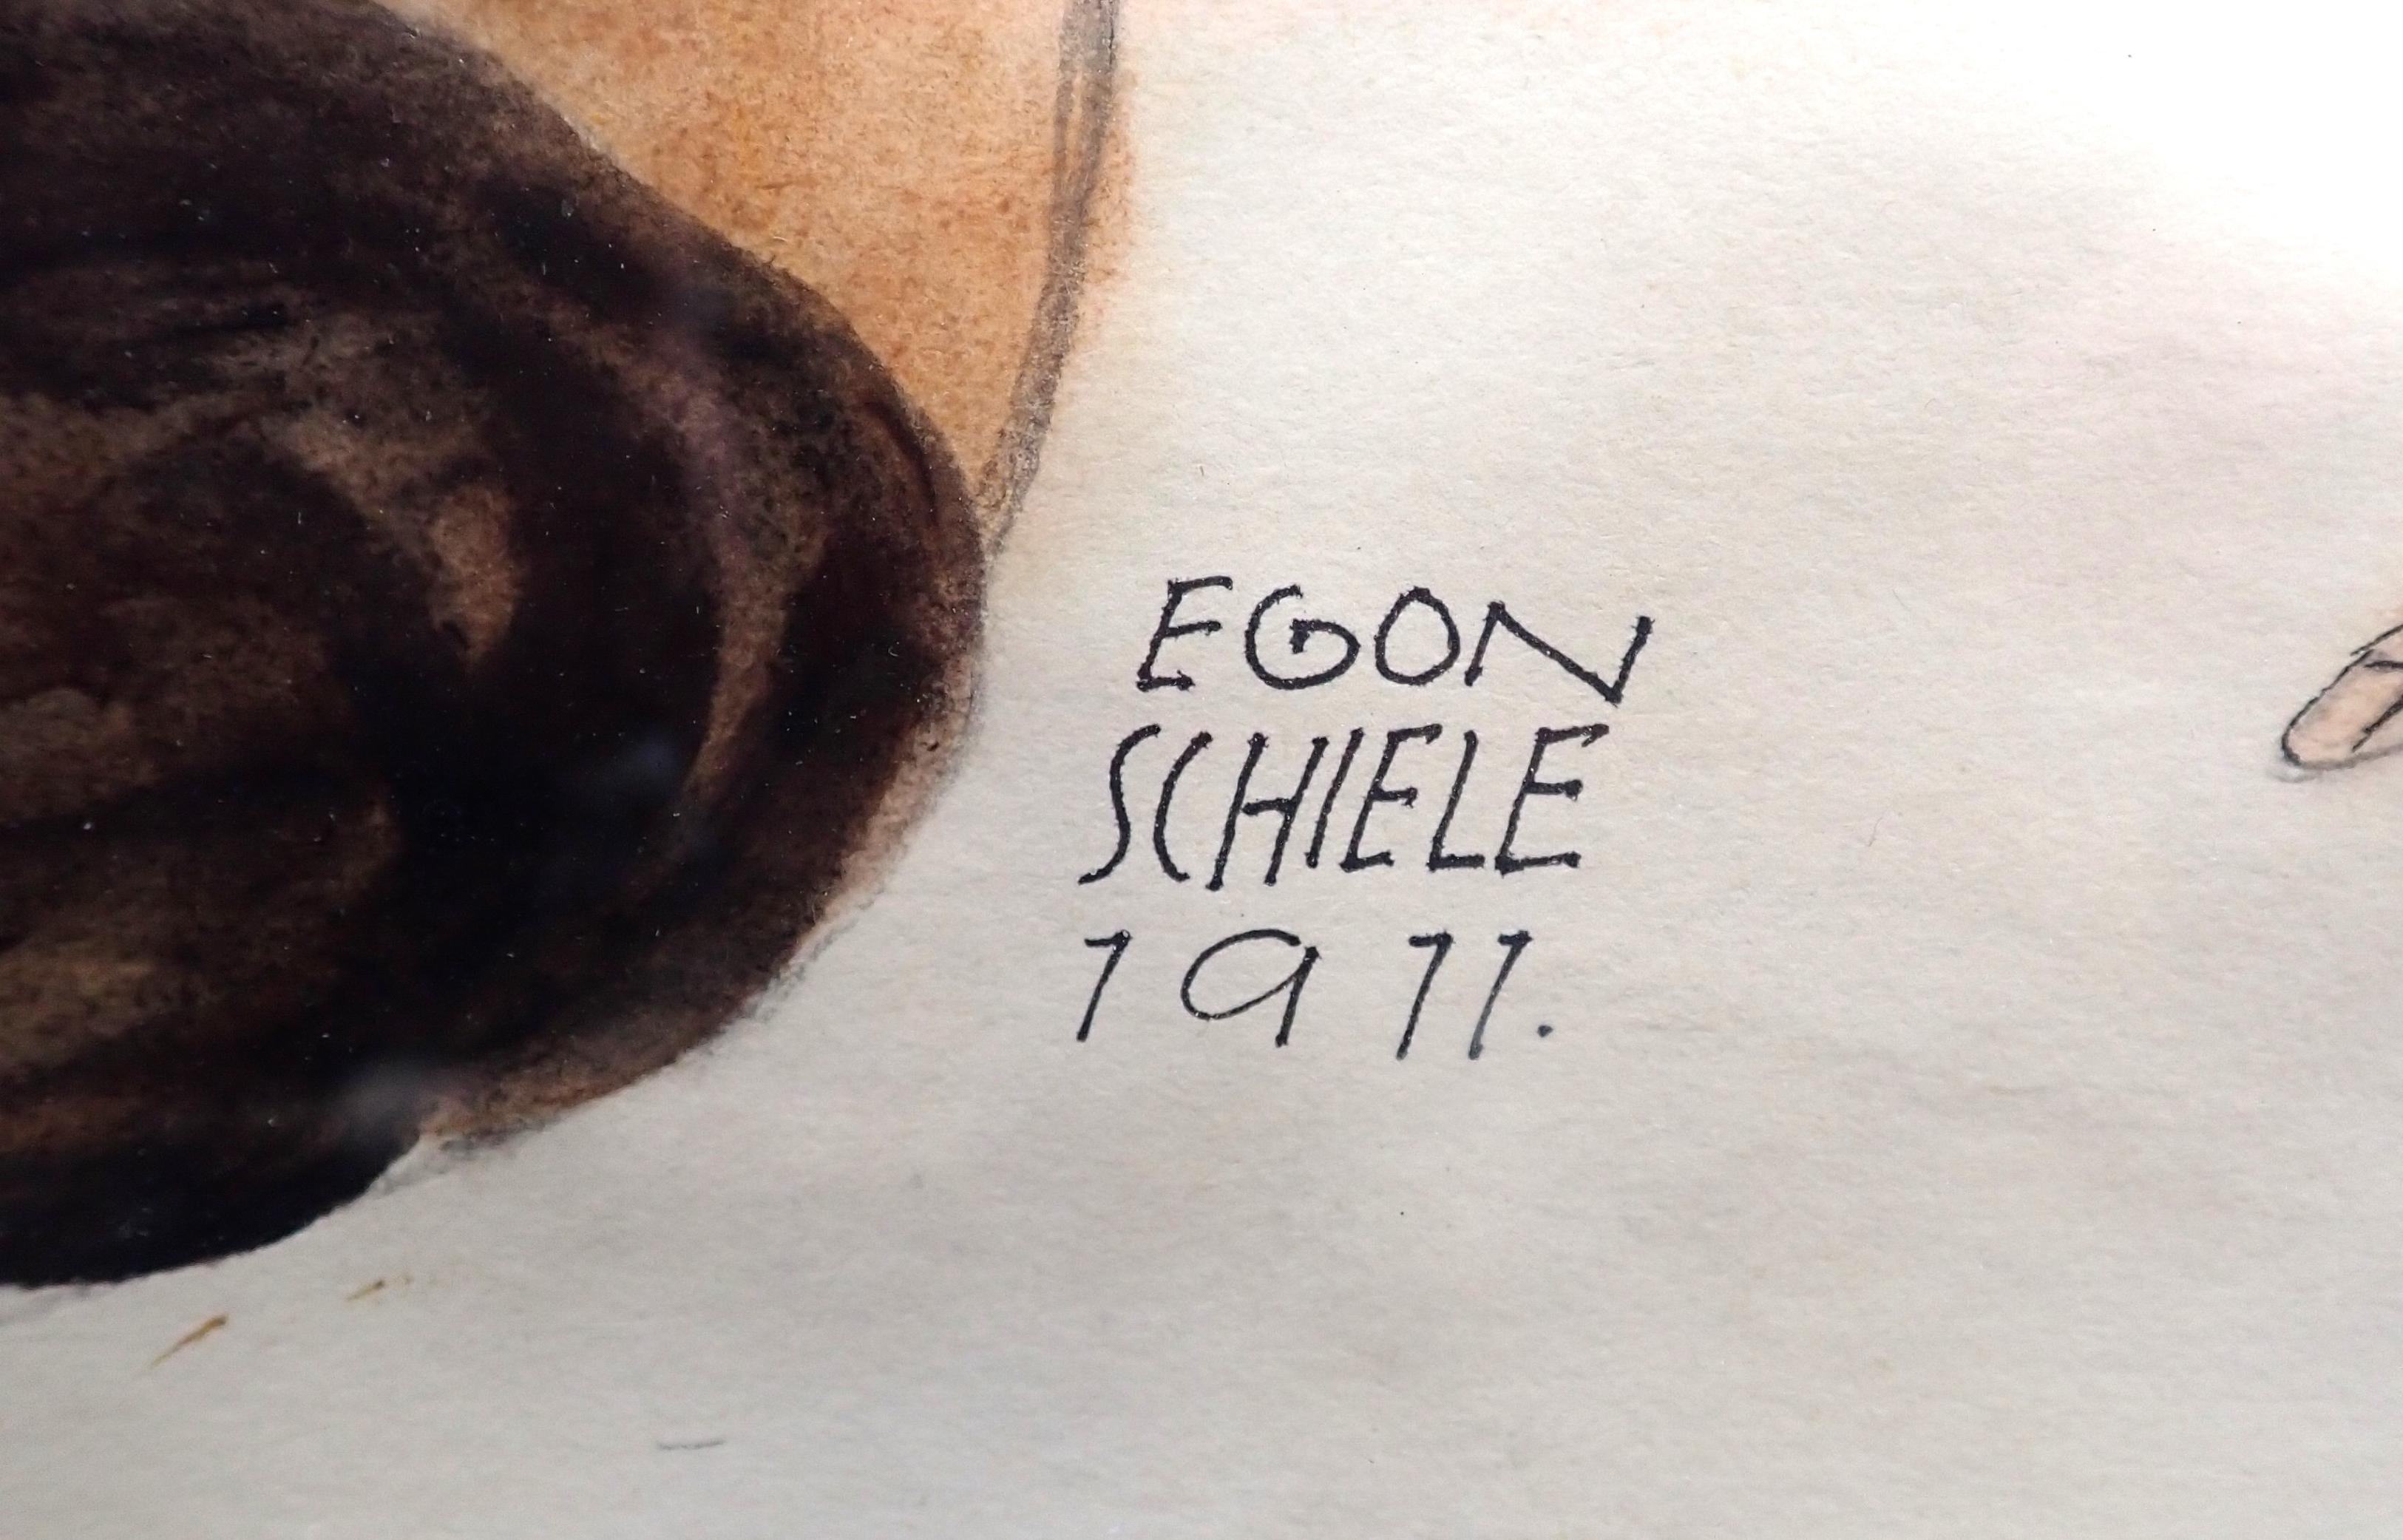 EGON
SCHIELE
1911.